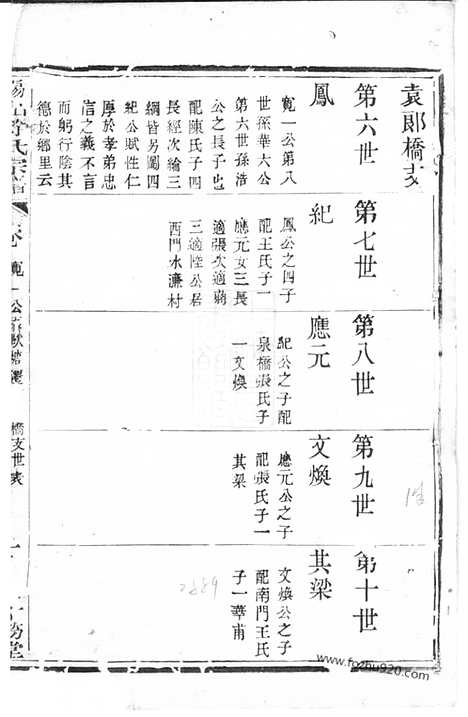 袁郎橋支
第六世
第七世
第八世
第九世
第十世
鳳
寬一公第八
世孫華六公
第六世孫浩
公之長子也
配陳氏子四
長經次綸三
綱皆另圖四
紀公賦性仁
厚於孝弟忠
信之義不言
而躬行陰其
德於鄉里云
紀
鳳公之四子
配王氏子一
應元女三長
適張次適蔣
三適陸公居
西門水濂村
應元
紀公之子配
泉橋張氏子
一文煥
文煥
應元公之子
配張氏子一
其梁
其梁
文煥公之子
配南門王氏
子一華甫
氏宗譜
一公
橋支世表
堂
2889
www.fozhu920.com